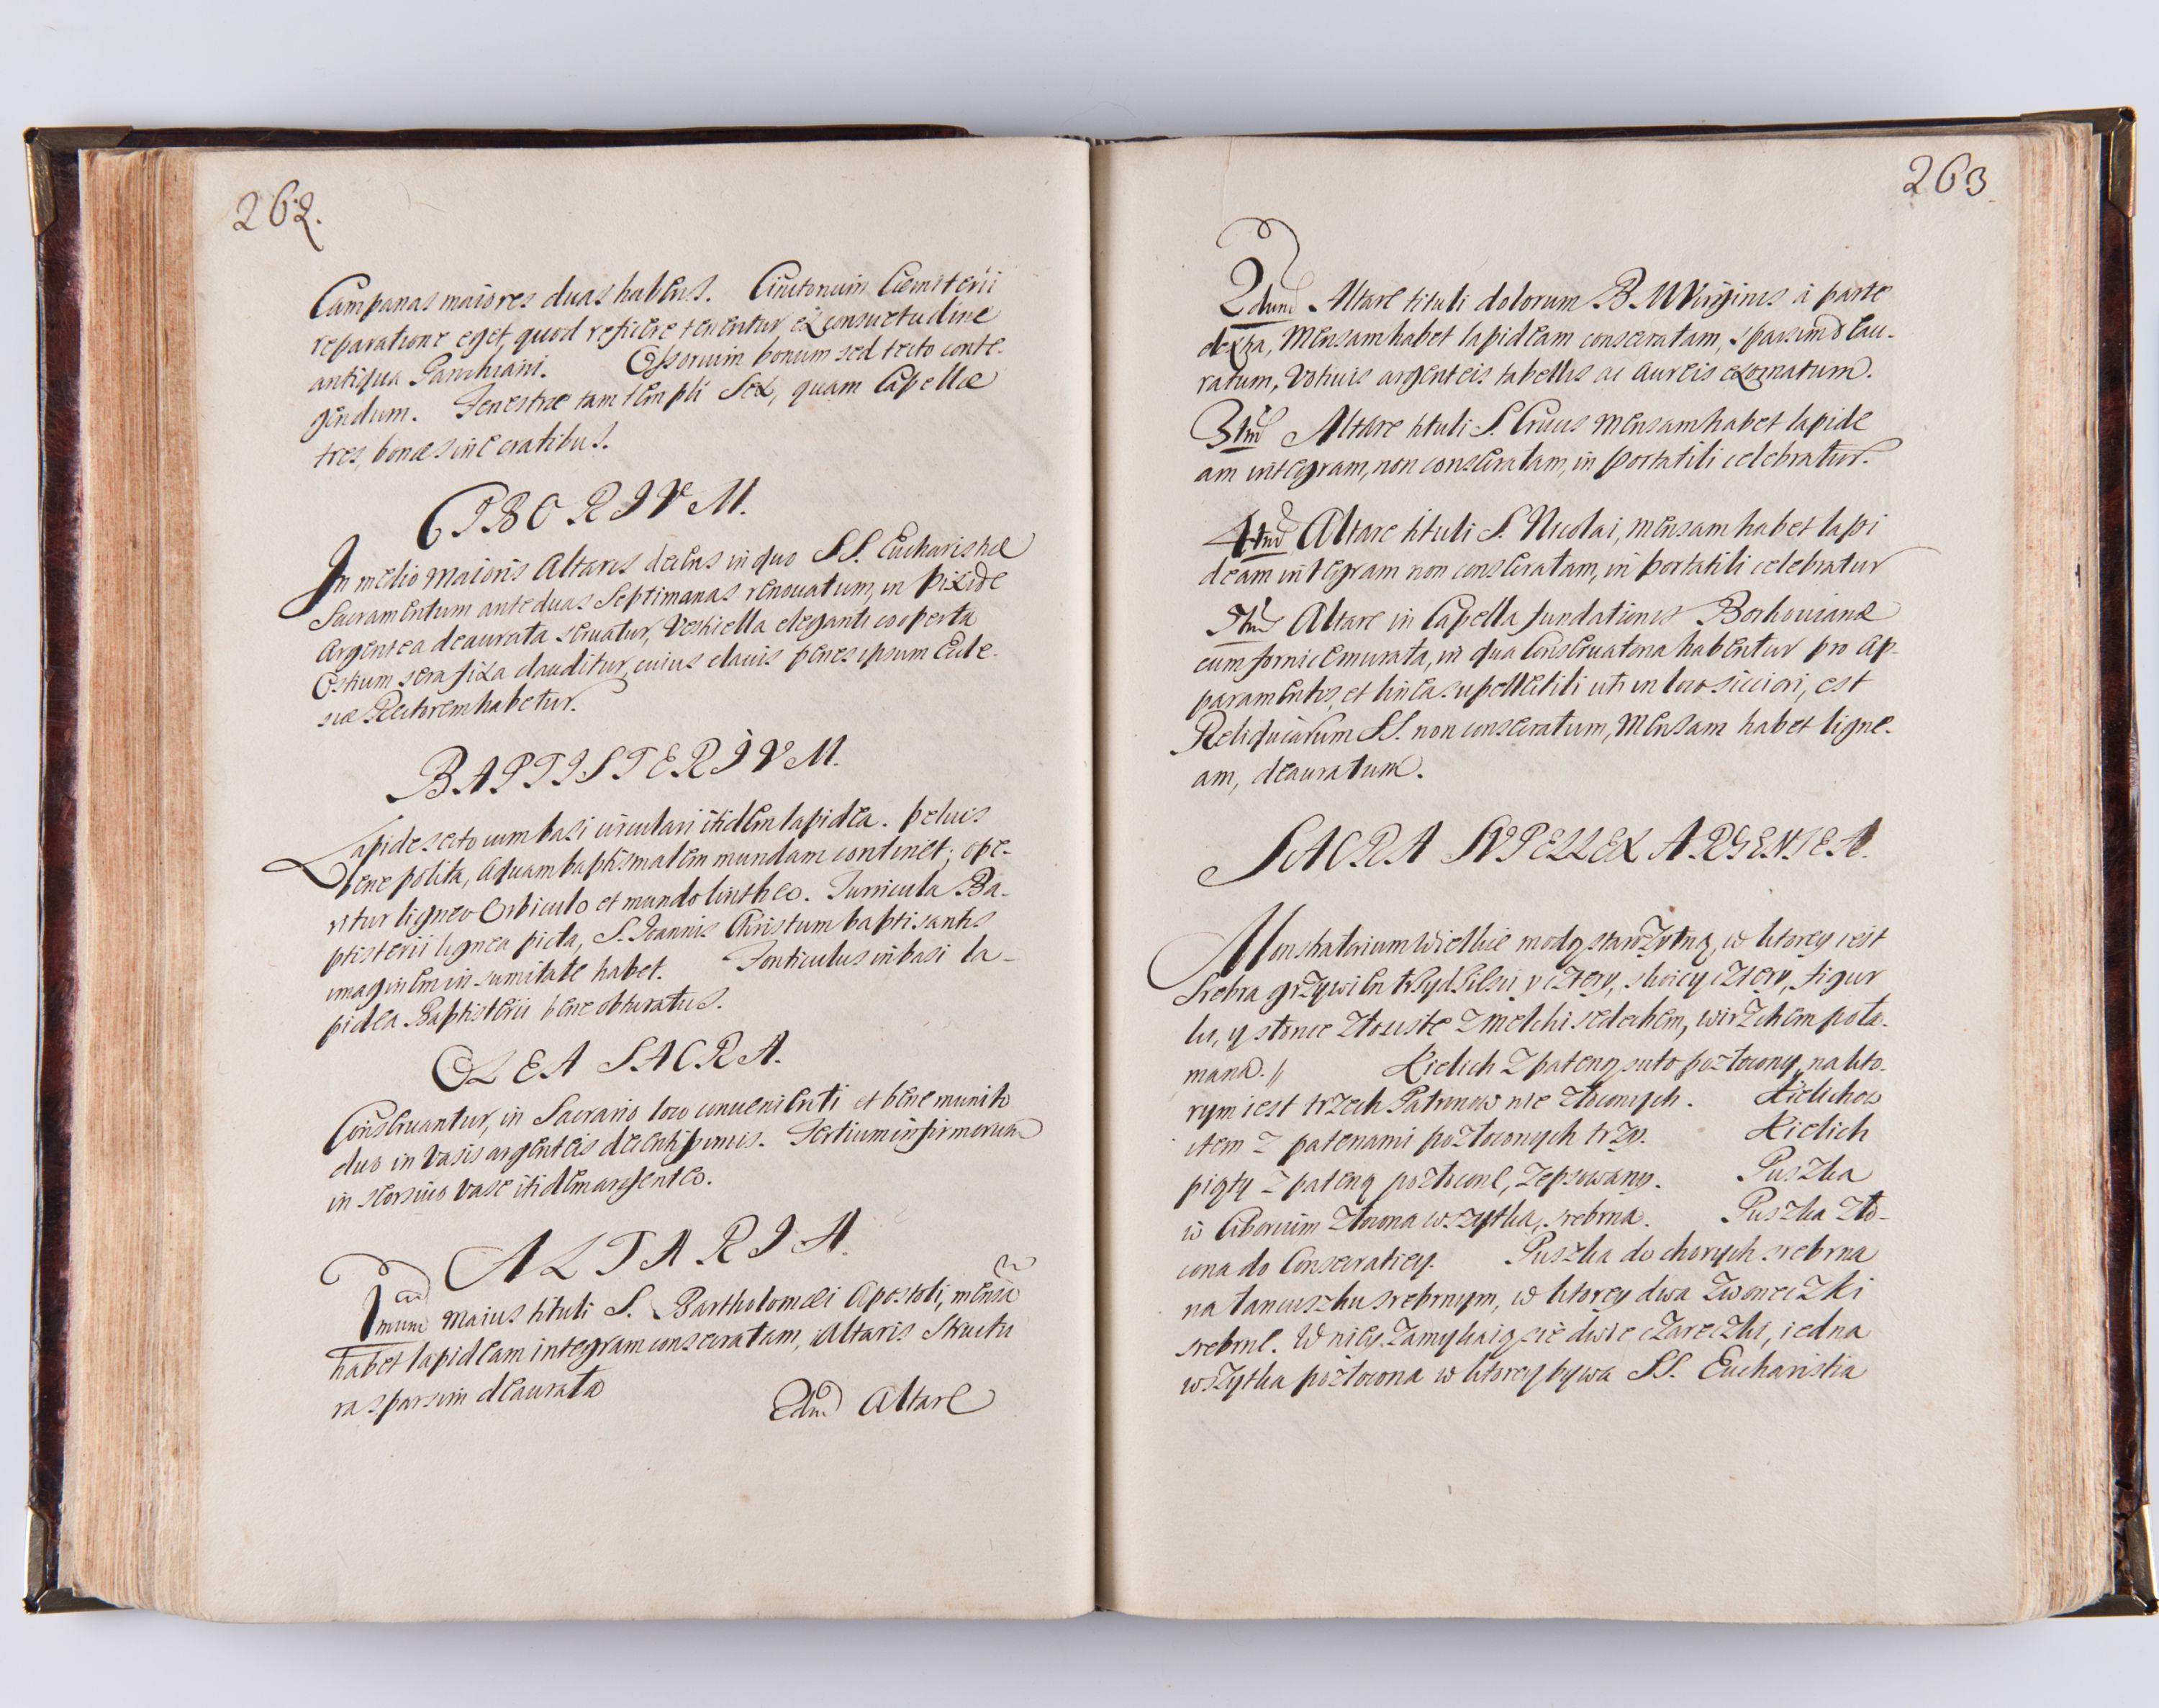 262.
Campanas maiores duas habens. Cinctorium Cæmiterii
reparatione eget, quod reficere tenentur ex consuetudine
antiqua Parochiani. Ossorium bonum sed tecto conte-
gendum. Fenestræ tam templi Sex, quam Capellæ
tres, bonæ sine cratibus.
CIBORIVM.
In medio maioris Altaris decens in quo SS. Eucharistiæ
Sacramentum ante duas Septimanas renouatum, in pixide
Argentea deaurata seruatur, Vesticella eleganti cooperta
Ostium sera fixa clauditur, cuius clauis penes ipsum Eccle-
siæ Rectorem habetur.
BAPTISTERIVM.
Lapide secto cum basi circulari itidem lapidea. peluis
bene polita, Aquam baptismalem mundam continet; ope-
ritur ligneo Orbiculo et mundo lintheo. Turricula Ba-
ptisterii lignea picta, S. Ioannis Christum baptisantis
imaginem in sumitate habet. Fonticulus in basi la-
pidea Baptisterii bene obturatus.
OLEA SACRA.
Conseruantur, in Sacrario loco conuenienti et bene munito
duo in Vasis argenteis decentissimis. Tertium infirmorum
in seorsiuo Vase itidem argenteo.
ALTARIA.
1mum maius tituli S. Bartholomæi Apostoli, mensam
habet lapideam integram consecratam, Altaris Structu
ra sparsim deaurata
2dum Altare
263
2dum Altare tituli dolorum B. M Virginis à parte
dextra, Mensam habet lapideam consecratam, sparsim deau-
ratum, Votiuis argenteis tabellis ac Aureis exornatum.
3tium Altare tituli S. Crucis Mensam habet lapide
am integram, non consecratam, in portatili celebratur.
4tum Altare tituli S. Nicolai, mensam habet lapi
deam integram non consecratam, in portatili celebratur
5tum Altare in Capella fundationis Borkouianæ
cum fornice murata, in qua Conseruatoria habentur pro Ap-
paramentis, et linea supellectili uti in loco sicciori, est
Reliquiarum SS. non consecratum, Mensam habet ligne-
am, deauratum.
SACRA SVPELLEX ARGENTEA.
Monstratorium Wielkie modą starożytną, w ktorey iest
Srebra grzywien trzydziesci y cztery, słoicy cztery, figur
ku, y słonce złociste z melchisedechem, wirzchem poła-
mana. // Kielich z pateną suto pozłocony, na kto-
rym iest trzech Patronow nie złoconych. Kielichow
item z patenami pozłoconych trzy. Kielich
piąty z pateną pozłocone, zepsowany. Puszka
w Ciborium złocona wszytka, srebrna. Puszka zło-
cona do Consecratiey. Puszka do chorych srebrna
na łancuszku srebrnym, w ktorey dwa Zwoneczki
srebrne. W niey zamykaią się dwie czareczki, iedna
wszytka pozłocona w ktorey bywa SS. Eucharistia